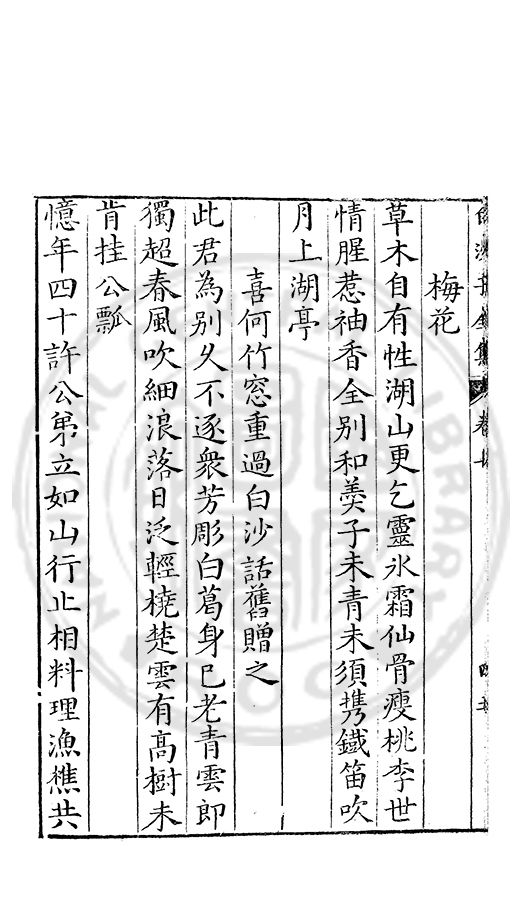 梅花
草木自有性湖山更乞靈氷霜仙骨瘦桃李世
情腥惹袖香全别和羮子未青未須携鐵笛吹
月上湖亭
喜何竹窓重過白沙話舊贈之
此君為别久不逐衆芳彫白葛身已老青雲即
獨超春風吹細浪落日泛輕橈楚雲有高樹未
肯挂公瓢
憶年四十許公弟立如山行止相料理漁樵共